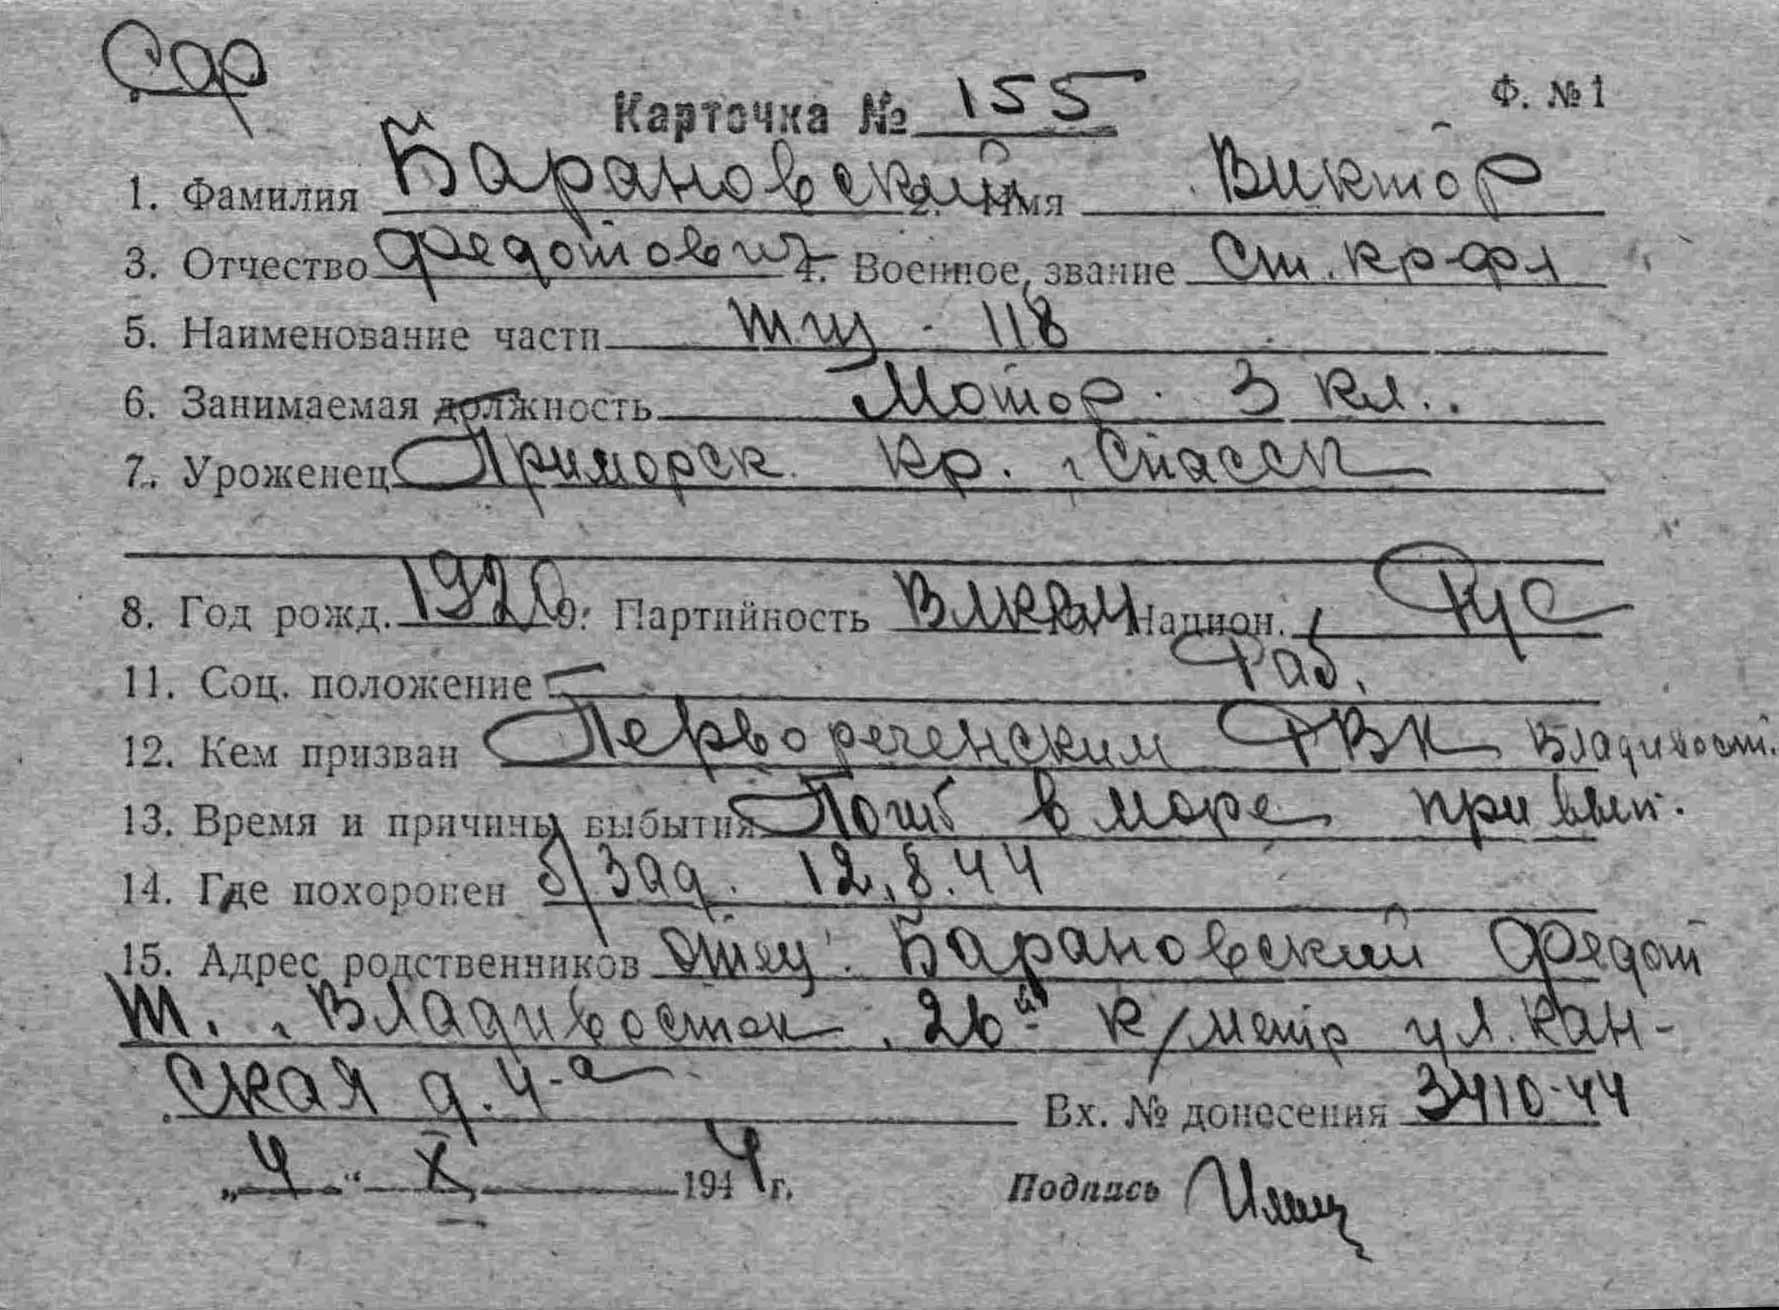 Сар
Карточка № 155 Ф. № 1
1. Фамилия Барановский 2. Имя Виктор
3. Отчество Федотович 4. Военное звание Ст. кр-фл
5. Наименование части ТЩ - 118
6. Занимаемая должность Мотор. 3 кл..
7. Уроженец Приморск. кр. г Спасск
8. Год рожд. 1920 9. Партийность ВЛКСМ 10. Национ. Рус
11. Соц. положение Раб.
12. Кем призван Первореченским РВК Владивост.
13. Время и причины выбытия Погиб в море при вып.
14. Где похоронен б/зад. 12.8.44
15. Адрес родственников отец: Барановский Федот
Т. г. Владивосток, 26й к/метр ул. Кан-
ская д. 4-а
Вх. № донесения 3410-44
„4“ X 1944 г. Подпись